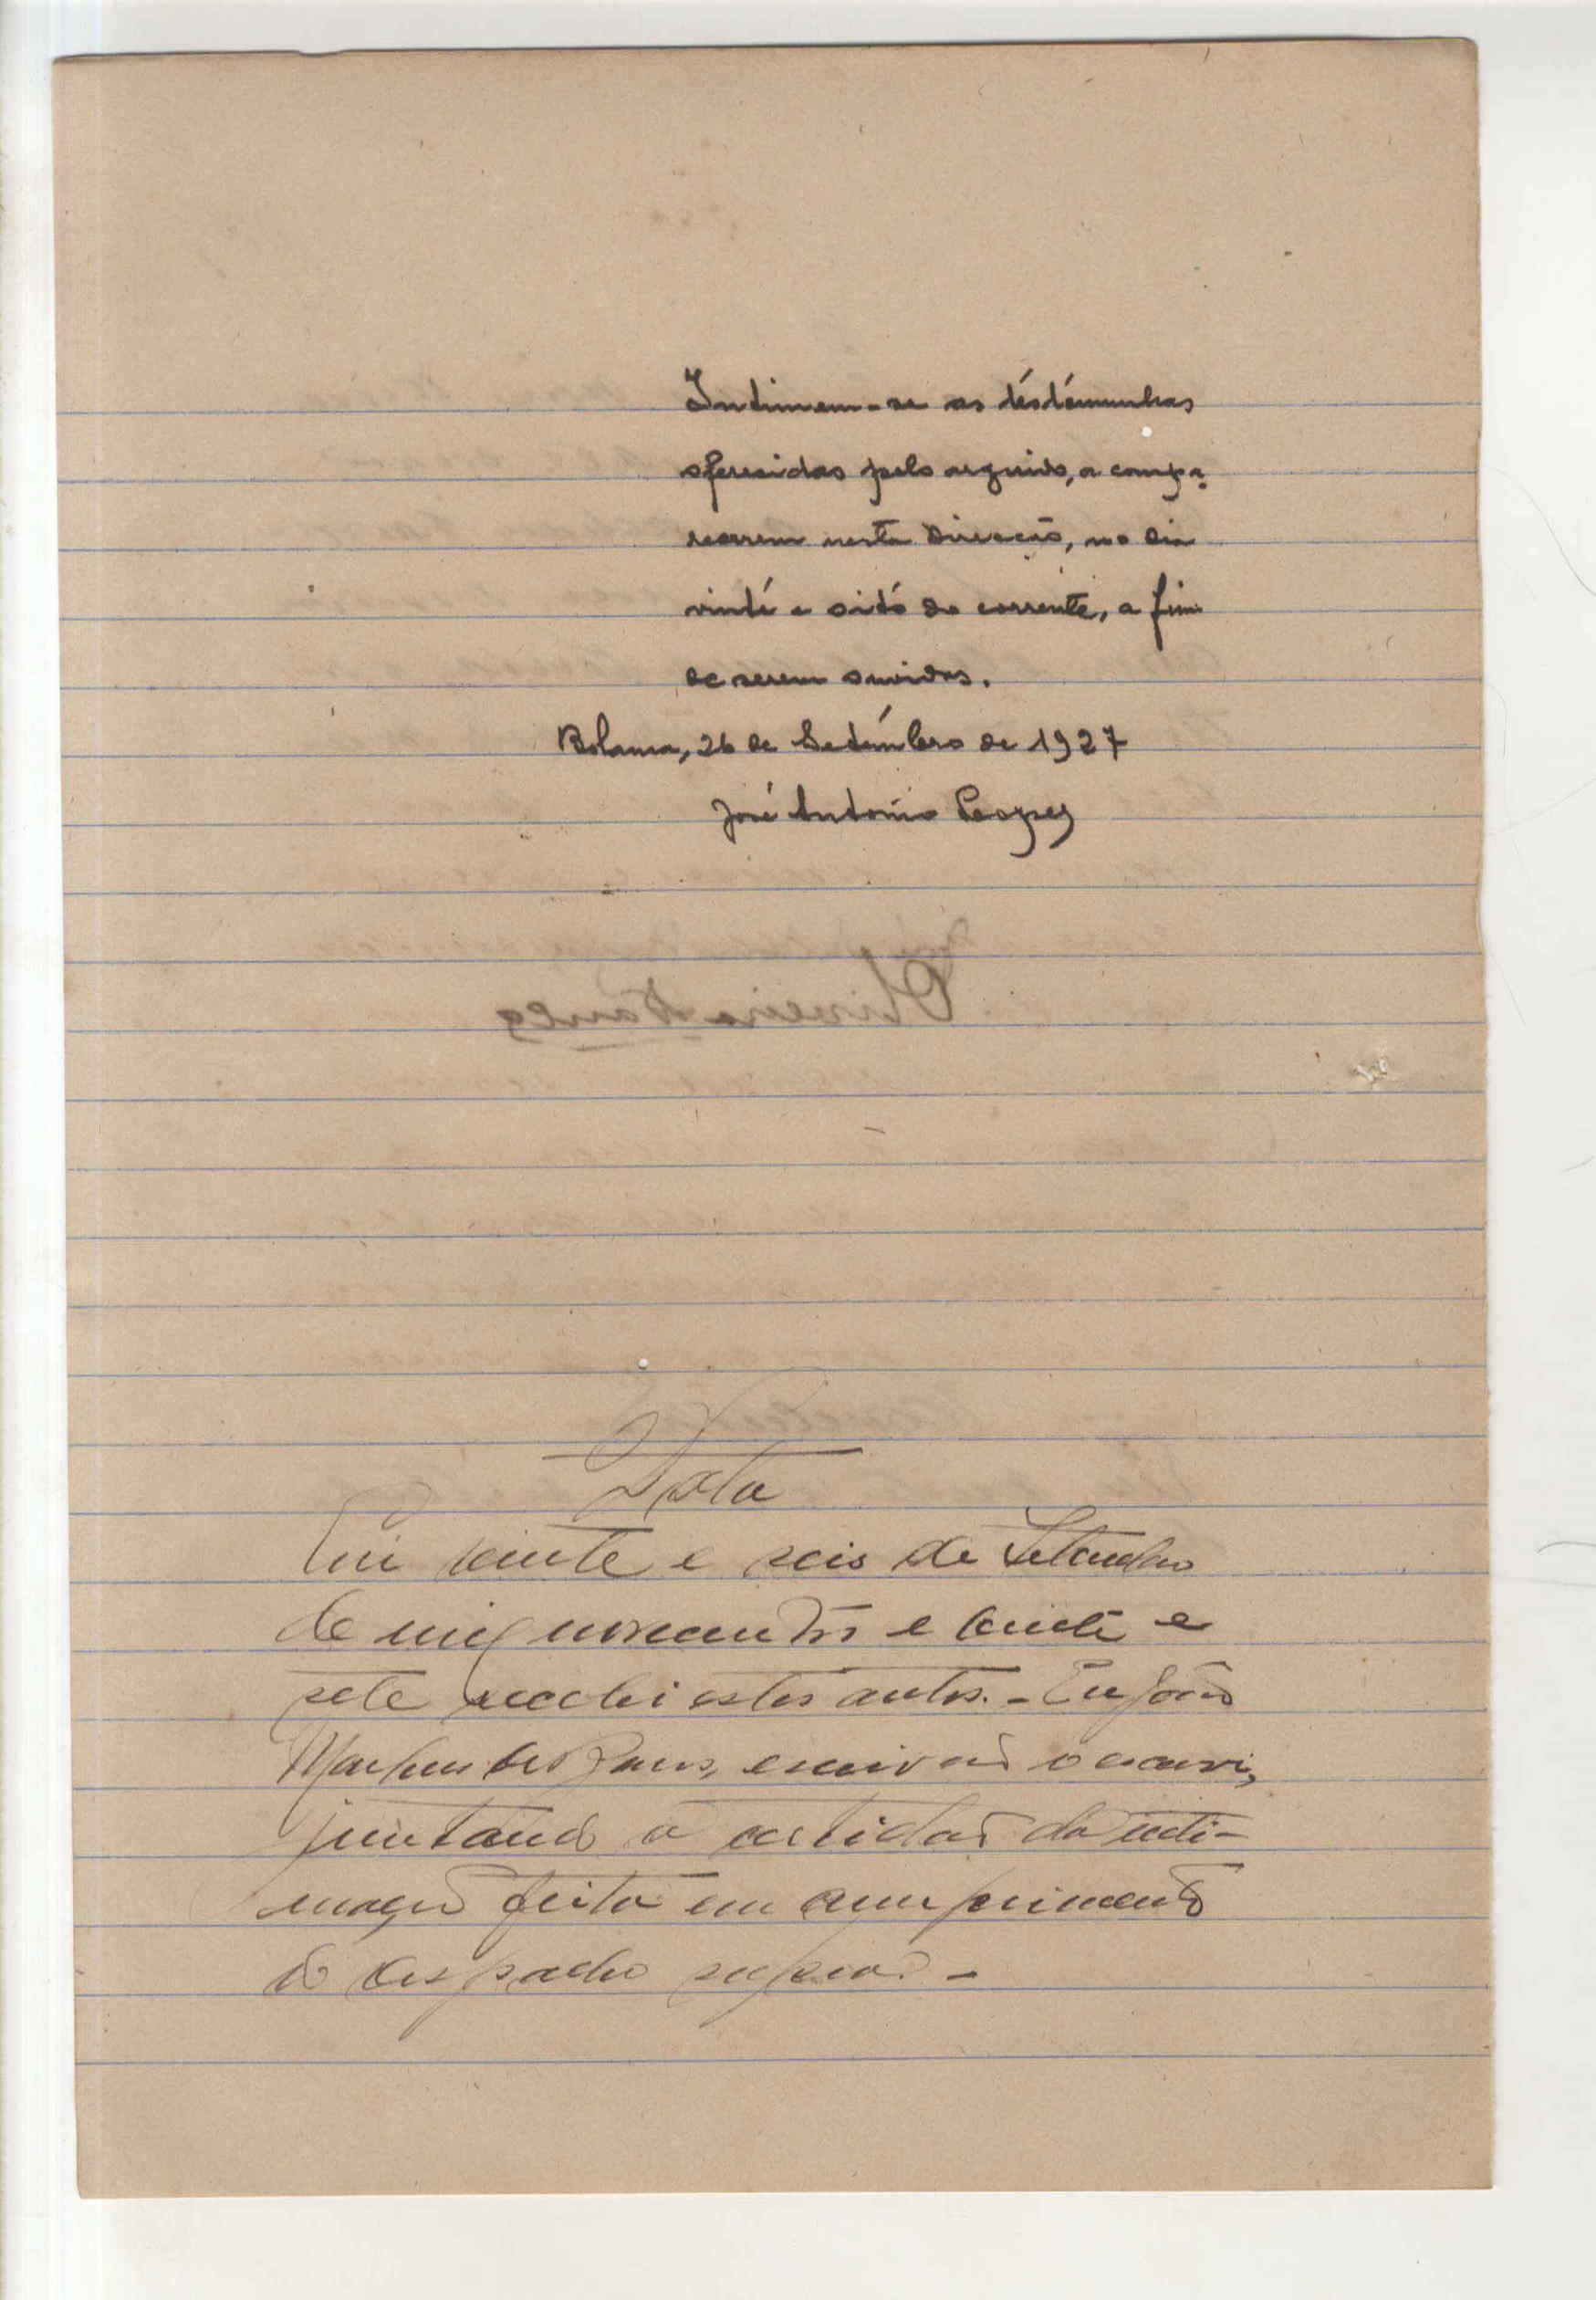 Intimem-se as téstémunhas
oferecidas pelo arguido, a compa-
recerem nesta Direcção, no dia
vinté e oitó do corrente, a fim
de serem ouvidas.
Bolama, 26 de Setémbro de 1927
José António Leger
Data
Em vinte e seis de Setembro
de mil novecentos e vinte e
sete recebi estes autos. - Eu João
escrivão o escrevi,
juntando a certidão da inti-
mação feita em cumprimento
do despacho supra -